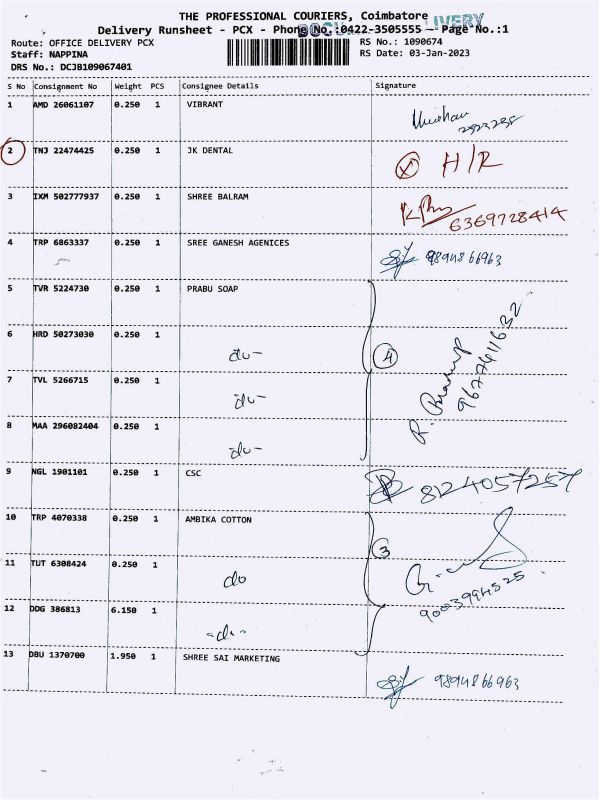 THE PROFESSIONAL COURIERS, Coimbatore
Delivery Runsheet - PCX - Phone No.:0422-3505555 - Page No.:1
Route: OFFICE DELIVERY PCX
RS No.: 1090674
Staff: NAPPINA
RS Date: 03-Jan-2023
DRS No.: DCJB109067401
S No Consignment No Weight PCS Consignee Details Signature
1 AMD 26061107 0.250 1 VIBRANT
2 TNJ 22474425 0.250 1 JK DENTAL X H/R
3 IXM 502777937 0.250 1 SHREE BALRAM 6369728414
4 TRP 6863337 0.250 1 SREE GANESH AGENICES 9894866963
5 TVR 5224730 0.250 1 PRABU SOAP
6 HRD 50273030 0.250 1 do- 4
7 TVL 5266715 0.250 1 do-
8 MAA 296082404 0.250 1 do-
9 NGL 1901101 0.250 1 CSC 8124057257
10 TRP 4070338 0.250 1 AMBIKA COTTON 3
11 TUT 6308424 0.250 1 do
9003994525
12 DDG 386813 6.150 1 -do-
13 DBU 1370700 1.950 1 SHREE SAI MARKETING
9894866963